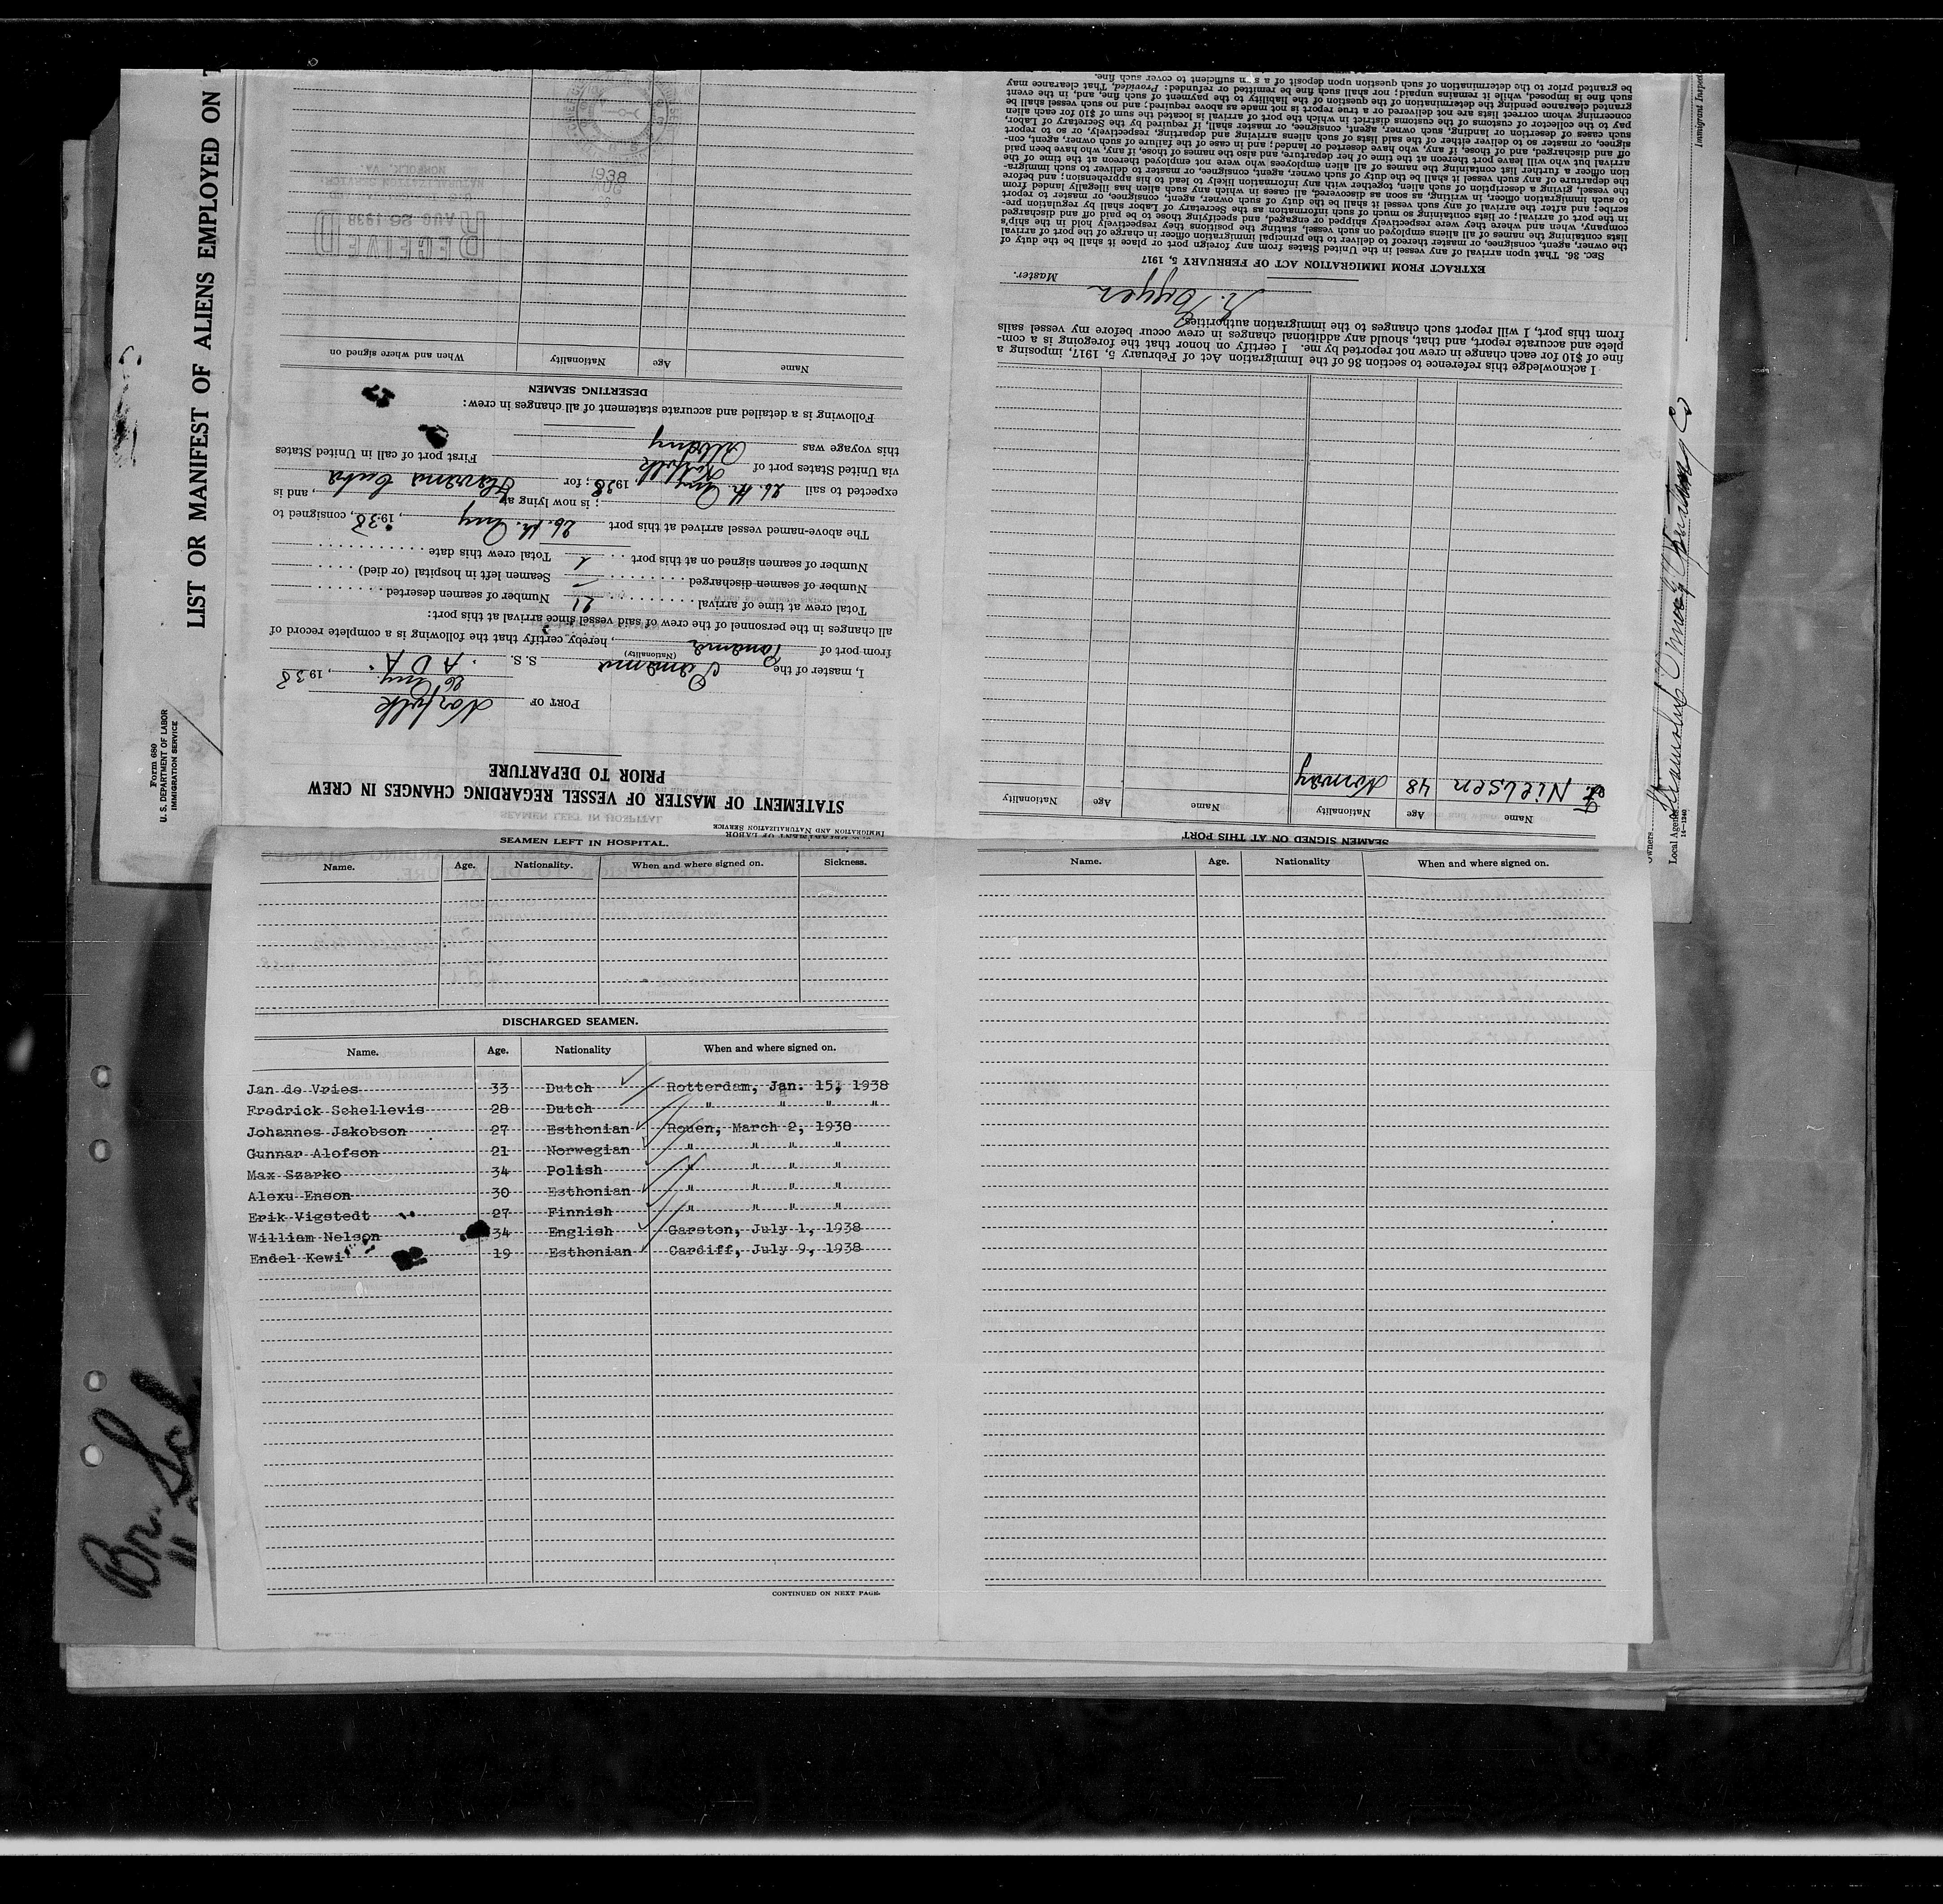 LIST OR MANIFEST OF ALIENS EMPLOYED ON
Form 680
U. S. DEPARTMENT OF LABOR
IMMIGRATION SERVICE
IMMIGRATION AND NATURALIZATION SERVICE
STATEMENT OF MASTER OF VESSEL REGARDING CHANGES IN CREW
PRIOR TO DEPARTURE
PORT OF Norfolk
26 Aug, 1938
I, master of the Panama S. S. ADA
(Nationality)
from port of Panama, hereby certify that the following is a complete record of
all changes in the personnel of the crew of said vessel since arrival at this port:
Total crew at time of arrival 21 Number of seamen deserted
Number of seamen discharged Seamen left in hospital (or died)
Number of seamen signed on at this port 1 Total crew this date
The above-named vessel arrived at this port 26. th. Aug, 1938, consigned to
; is now lying at, and is
expected to sail 26. th. Aug, 1938; for Havana Cuba
via United States port of Norfolk First port of call in United States
this voyage was Albany
Following is a detailed and accurate statement of all changes in crew:
DESERTING SEAMEN
Name Age Nationality When and where signed on
RECEIVED
AUG 26 1938
NORFOLK, VA.
1938
AUG
SEAMEN SIGNED ON AT THIS PORT
Name Age Nationality Name Age Nationality
Nielsen 48 Norway
I acknowledge this reference to section 36 of the Immigration Act of February 5, 1917, imposing a
fine of $10 for each change in crew not reported by me. I certify on honor that the foregoing is a com-
plete and accurate report, and that, should any additional changes in crew occur before my vessel sails
from this port, I will report such changes to the immigration authorities.
Master.
EXTRACT FROM IMMIGRATION ACT OF FEBRUARY 5, 1917
Sec. 36. That upon arrival of any vessel in the United States from any foreign port or place it shall be the duty of
the owner, agent, consignee, or master thereof to deliver to the principal immigration officer in charge of the port of arrival
lists containing the names of all aliens employed on such vessel, stating the positions they respectively hold in the ship's
company, when and where they were respectively shipped or engaged, and specifying those to be paid off and discharged
in the port of arrival; or lists containing so much of such information as the Secretary of Labor shall by regulation pre-
scribe; and after the arrival of any such vessel it shall be the duty of such owner, agent, consignee, or master to report
to such immigration officer, in writing, as soon as discovered, all cases in which any such alien has illegally landed from
the vessel, giving a description of such alien, together with any information likely to lead to his apprehension; and before
the departure of any such vessel it shall be the duty of such owner, agent, consignee, or master to deliver to such immigra-
tion officer a further list containing the names of all alien employees who were not employed thereon at the time of the
arrival but who will leave port thereon at the time of her departure, and also the names of those, if any, who have been paid
off and discharged, and of those, if any, who have deserted or landed; and in case of the failure of such owner, agent, con-
signee, or master so to deliver either of the said lists of such aliens arriving and departing, respectively, or so to report
such cases of desertion or landing, such owner, agent, consignee, or master shall, if required by the Secretary of Labor,
pay to the collector of customs of the customs district in which the port of arrival is located the sum of $10 for each alien
concerning whom correct lists are not delivered or a true report is not made as above required; and no such vessel shall be
granted clearance pending the determination of the question of the liability to the payment of such fine, and, in the event
such fine is imposed, while it remains unpaid; nor shall such fine be remitted or refunded: Provided, That clearance may
be granted prior to the determination of such question upon deposit of a sum sufficient to cover such fine.
Immigrant Inspec
Owners
Local Agents
14—1240
SEAMEN LEFT IN HOSPITAL.
Name. Age. Nationality. When and where signed on. Sickness.
DISCHARGED SEAMEN.
Name. Age. Nationality When and where signed on.
Jan de Vries 33 Dutch Rotterdam, Jan. 15, 1938
Fredrick Schellevis 28 Dutch " " " "
Johannes Jakobson 27 Esthonian Rouen, March 2, 1938
Gunnar Alofson 21 Norwegian " " " "
Max Szarko 34 Polish " " " "
Alexu Enson 30 Esthonian " " " "
Erik Vigstedt 27 Finnish " " " "
William Nelson 34 English Garston, July 1, 1938
Endel Kewi 19 Esthonian Cardiff, July 9, 1938
CONTINUED ON NEXT PAGE.
Name. Age. Nationality When and where signed on.
Br. Sch